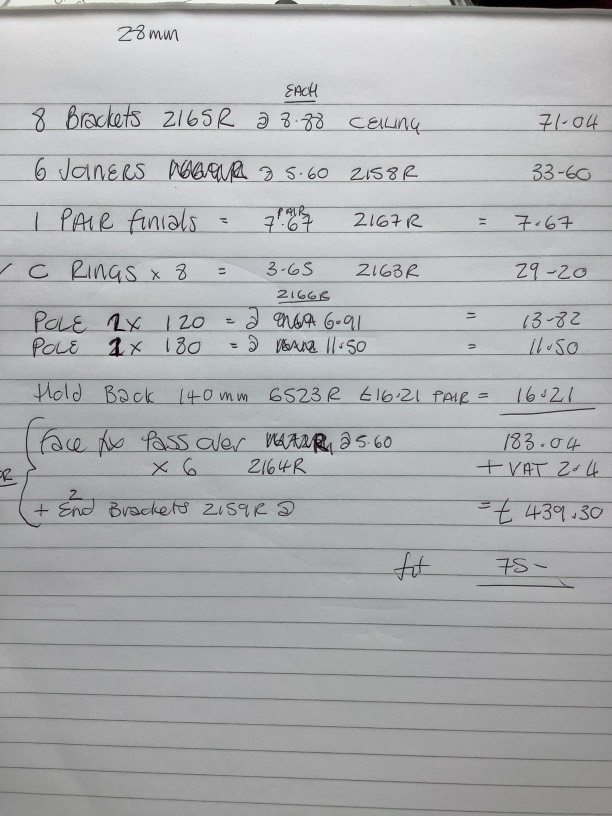 28mm
EACH
8 Brackets 2165R @ 8.88 CEILING 71-04
6 JOINERS @ 5.60 2158R 33-60
1 PAIR finials = 7.67 PAIR 2167R = 7.67
✓ C RINGS x 8 = 3.65 2163R 29-20
2166R
POLE 2x 120 = @ 6.91 = 13-82
POLE 1x 180 = @ 11.50 = 11.50
Hold Back 140mm 6523R £16.21 PAIR = 16.21
Face fix Pass over @ 5.60 183.04
OR x 6 2164R + VAT 2.4
+ 2 End Brackets 2159R @ = £ 439.30
fit 75-